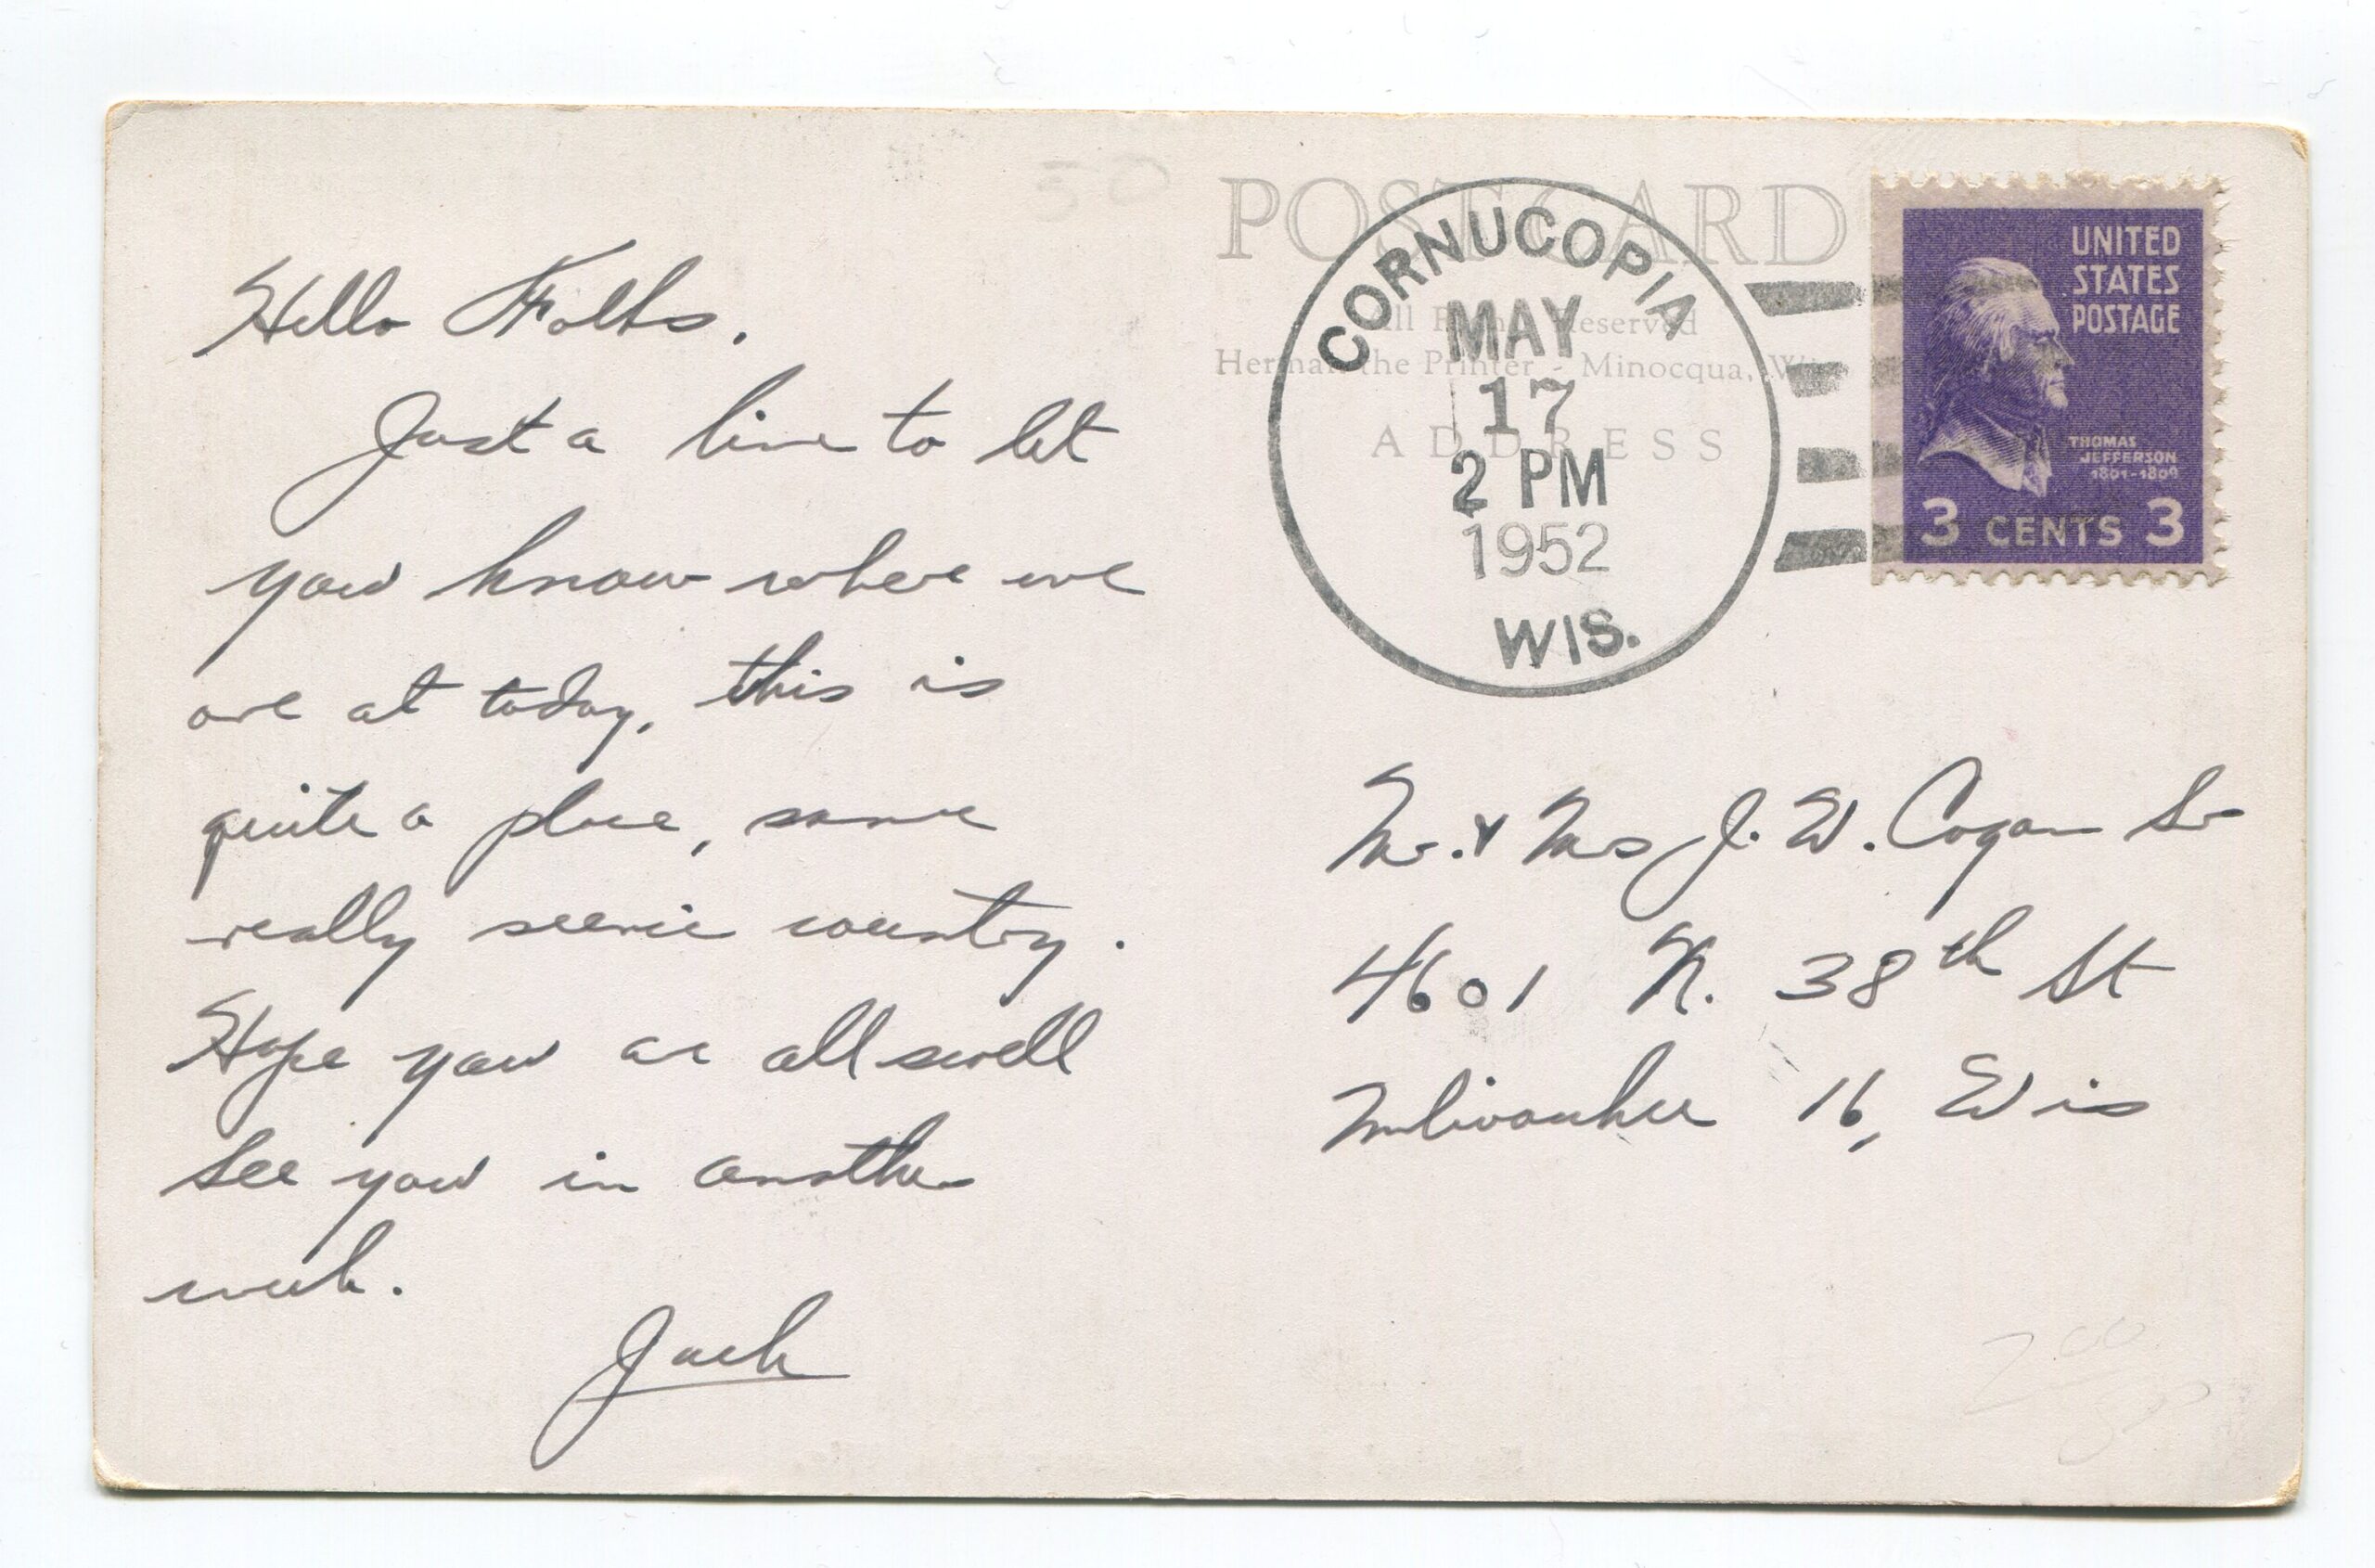 50
POST CARD
All Rights Reserved
Herman the Printer - Minocqua, Wis.
ADDRESS
CORNUCOPIA
MAY
17
2 PM
1952
WIS.
UNITED
STATES
POSTAGE
THOMAS
JEFFERSON
1801-1809
3 CENTS 3
Hello Folks,
Just a line to let
you know where we
are at today, this is
quite a place, some
really scenic country.
Hope you are all swell
See you in another
week.
Jack
Mr. & Mrs J. W. Cogan Sr
4601 N. 38th St
Milwaukee 16, Wis
200